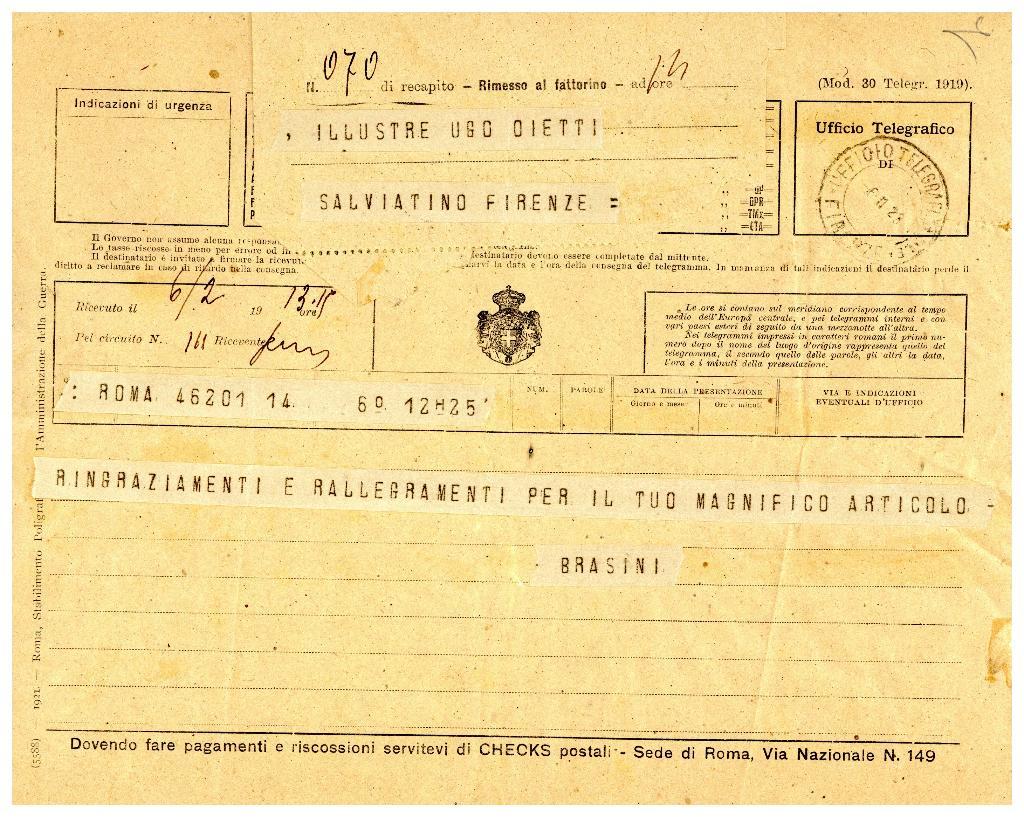 N. 070 di recapito - Rimesso al fattorino - ad ore
(Mod. 30 Telegr. 1919).
Indicazioni di urgenza
Ufficio Telegrafico
DI
, ILLUSTRE UGO OIETTI
SALVIATINO FIRENZE =
Il Governo non assume alcuna
Le tasse riscosse in meno per errore od in
Il destinatario è invitato a firmare la ricevuta
destinatario devono essere completate dal mittente.
la data e l'ora della consegna del telegramma. In mancanza di tali indicazioni il destinatario perde il
diritto a reclamare in caso di ritardo nella consegna.
Ricevuto il 6/2 19 ore 13.15
Pel circuito N. 111 Ricevente
Le ore si contano sul meridiano corrispondente al tempo
medio dell'Europa centrale, e pei telegrammi interni e con
vari paesi esteri di seguito da una mezzanotte all'altra.
Nei telegrammi impressi in caratteri romani il primo nu-
mero dopo il nome del luogo d'origine rappresenta quello del
telegramma, il secondo quello delle parole, gli altri la data,
l'ora e i minuti della presentazione.
: ROMA 46201 14 6º 12H25'
NUM.
PAROLE
DATA DELLA PRESENTAZIONE
Giorno e mese
Ore e minuti
VIA E INDICAZIONI
EVENTUALI D'UFFICIO
RINGRAZIAMENTI E RALLEGRAMENTI PER IL TUO MAGNIFICO ARTICOLO -
BRASINI
Dovendo fare pagamenti e riscossioni servitevi di CHECKS postali - Sede di Roma, Via Nazionale N. 149
(5388) 1921. — Roma, Stabilimento Poligraf l'Amministrazione della Guerra.